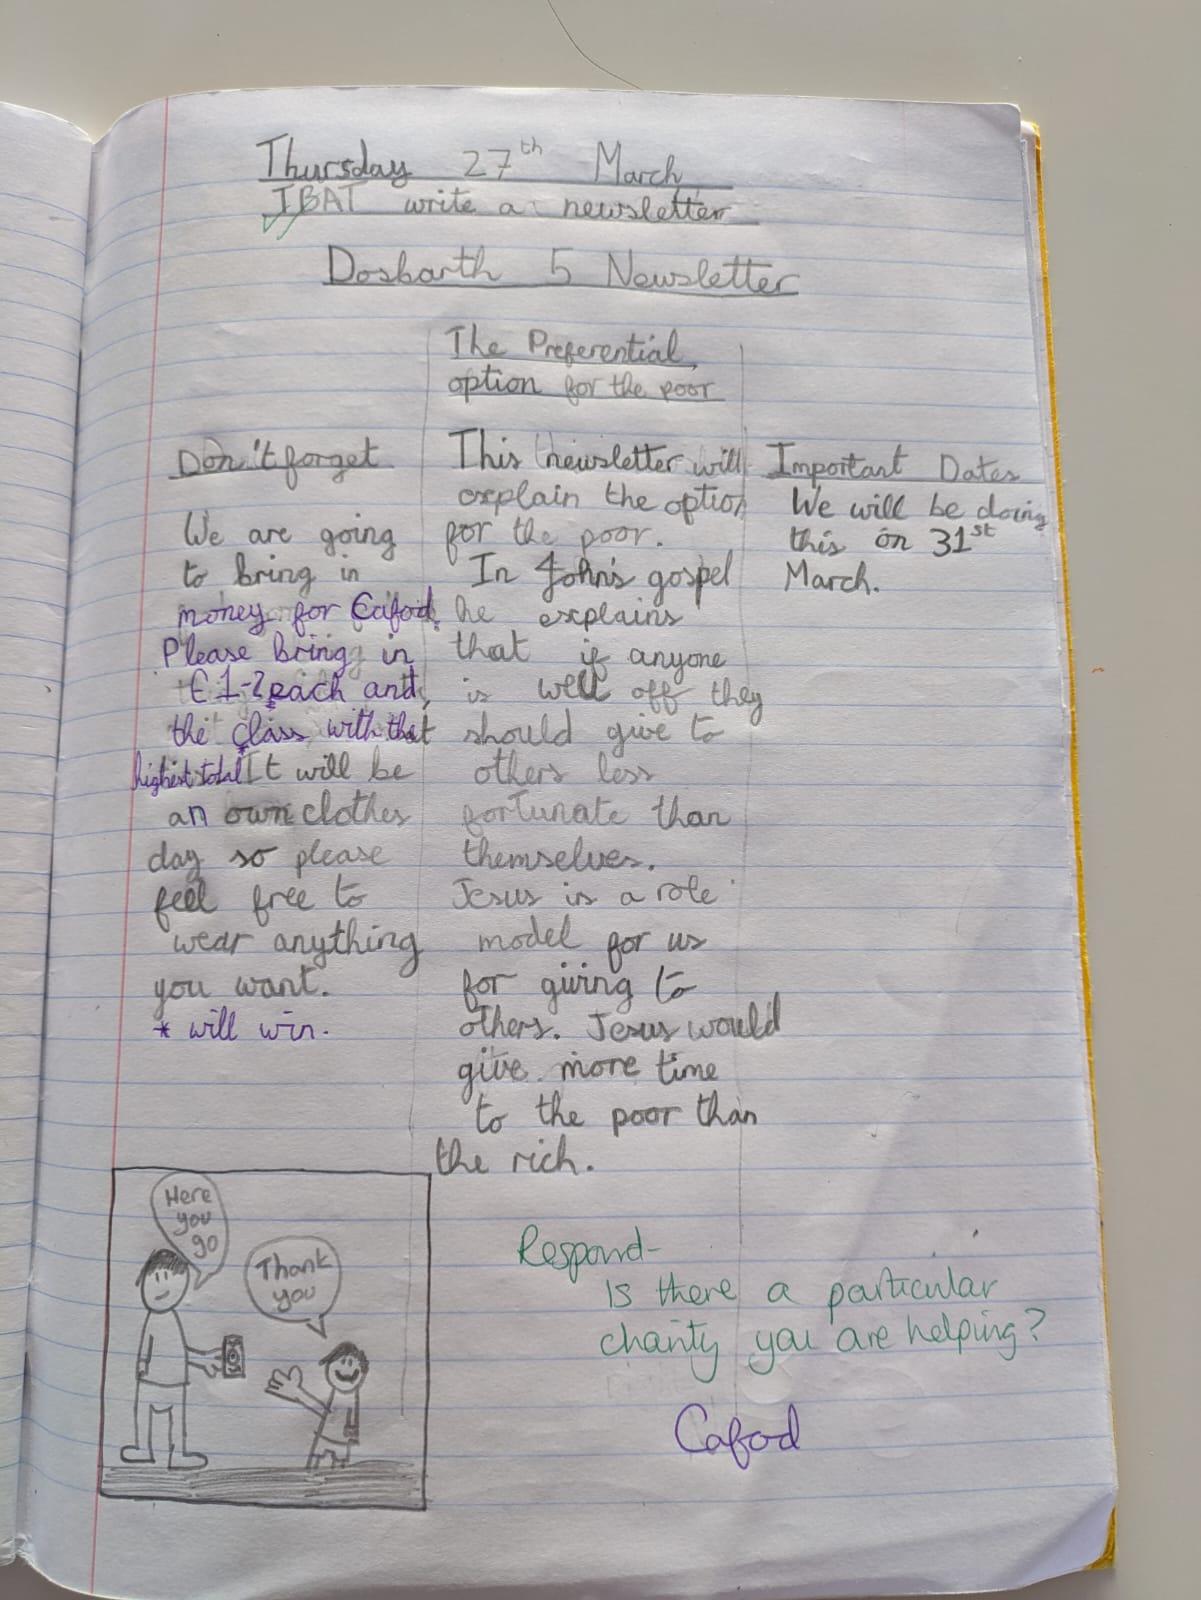 Thursday 27th March
IBAT write a newsletter
Dosbarth 5 Newsletter
Don't forget
We are going
to bring in
money for Cafod.
Please bring in
€1-2 each and
the class with that
highest total It will be
an own clothes
day so please
feel free to
wear anything
you want.
* will win.
The Preferential
option for the poor
This newsletter will
explain the option
for the poor.
In John's gospel
he explains
that if anyone
is well off they
should give to
others less
fortunate than
themselves.
Jesus is a role
model for us
for giving to
others. Jesus would
give more time
to the poor than
the rich.
Important Dates
We will be doing
this on 31st
March.
Here
you
go
Thank
you
Respond-
Is there a particular
charity you are helping?
Cafod